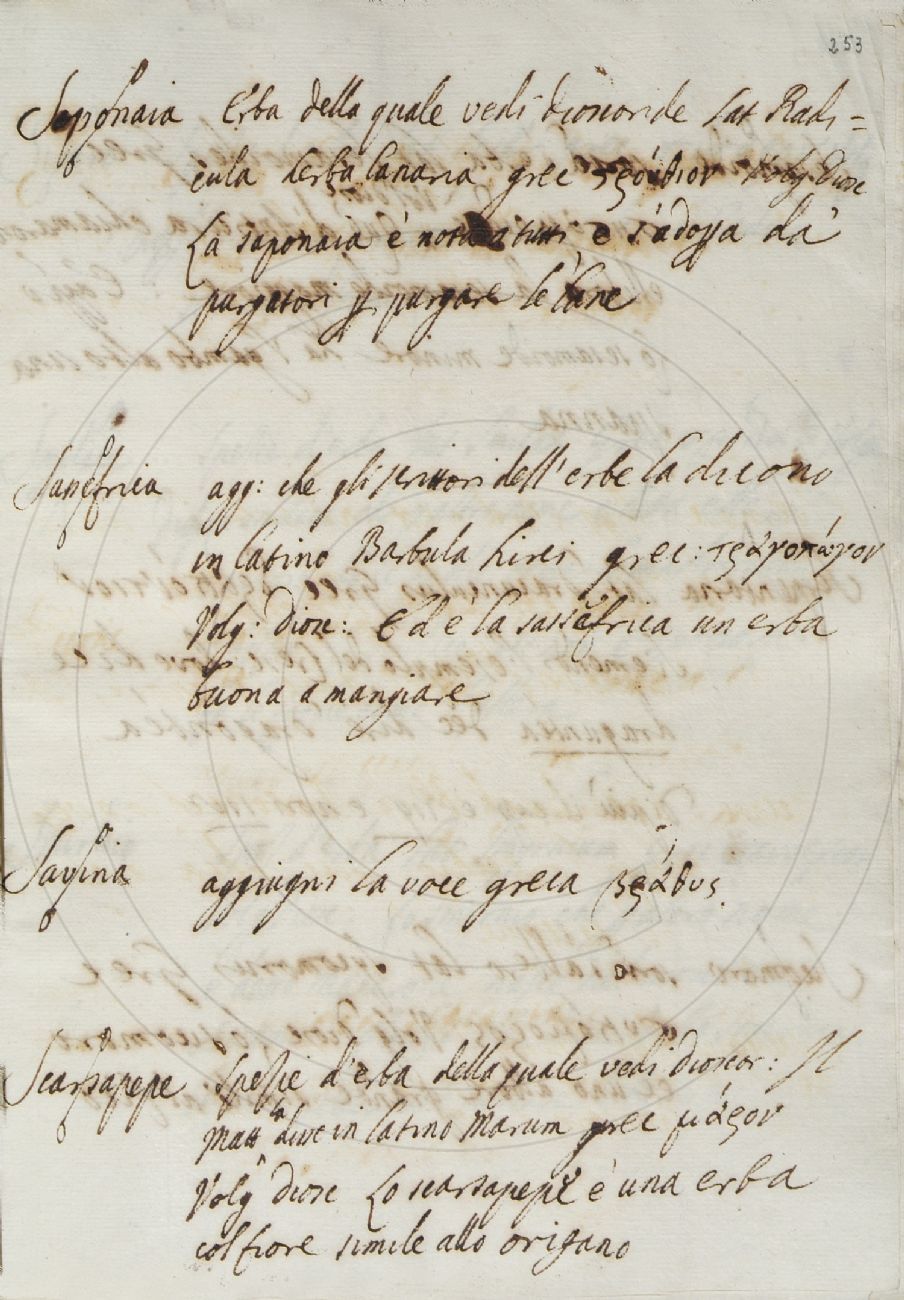 253
Saponaia Erba della quale vedi Dioscoride Lat Radi=
cula herba lanaria grec στρούθιον Volg Diosc
La saponaia è nota a tutti e s'adopra da
purgatori p purgare le lane
Sassefrica agg: che gli scrittori dell'erbe la dicono
in latino Barbula hirci grec: τράγοπώγον
Volg: Diosc: Ed è la sassefrica un erba
buona a mangiare
Savina aggiugni la voce greca βράθυς.
Scarsapepe Spezie d'erba della quale vedi Dioscor: Il
Matt la dice in latino Marum grec μάρον
Volg Diosc Lo scarsapepe è una erba
col fiore simile allo origano